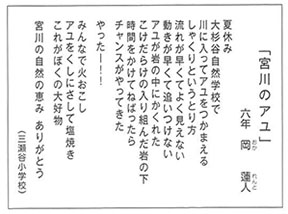 「宮川のアユ」
六年 岡 蓮人
おか れんと
夏休み
大杉谷自然学校で
川に入ってアユをつかまえる
しゃくりというとり方
流れが早くてよく見えない
動きが早くて追いつけない
アユが岩の中にかくれた
こけだらけの入り組んだ岩の下
時間をかけてねばったら
チャンスがやってきた
やったーー！！
みんなで火おこし
アユをくしにさして塩焼き
これがぼくの大好物
宮川の自然の恵み ありがとう
（三瀬谷小学校）